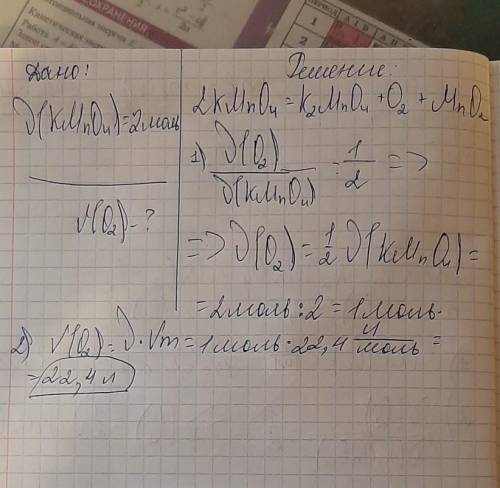 СОХРАНЕНИЯ
Дано:
ν(KMnO4)=2моль
V(O2)-?
Решение:
2KMnO4=K2MnO4+O2+MnO2
1) ν(O2)/ν(KMnO4) = 1/2 =>
=> ν(O2)=1/2 ν(KMnO4)=
=2моль:2=1моль.
2) V(O2)=ν·Vm=1моль·22,4 л/моль=
=22,4 л